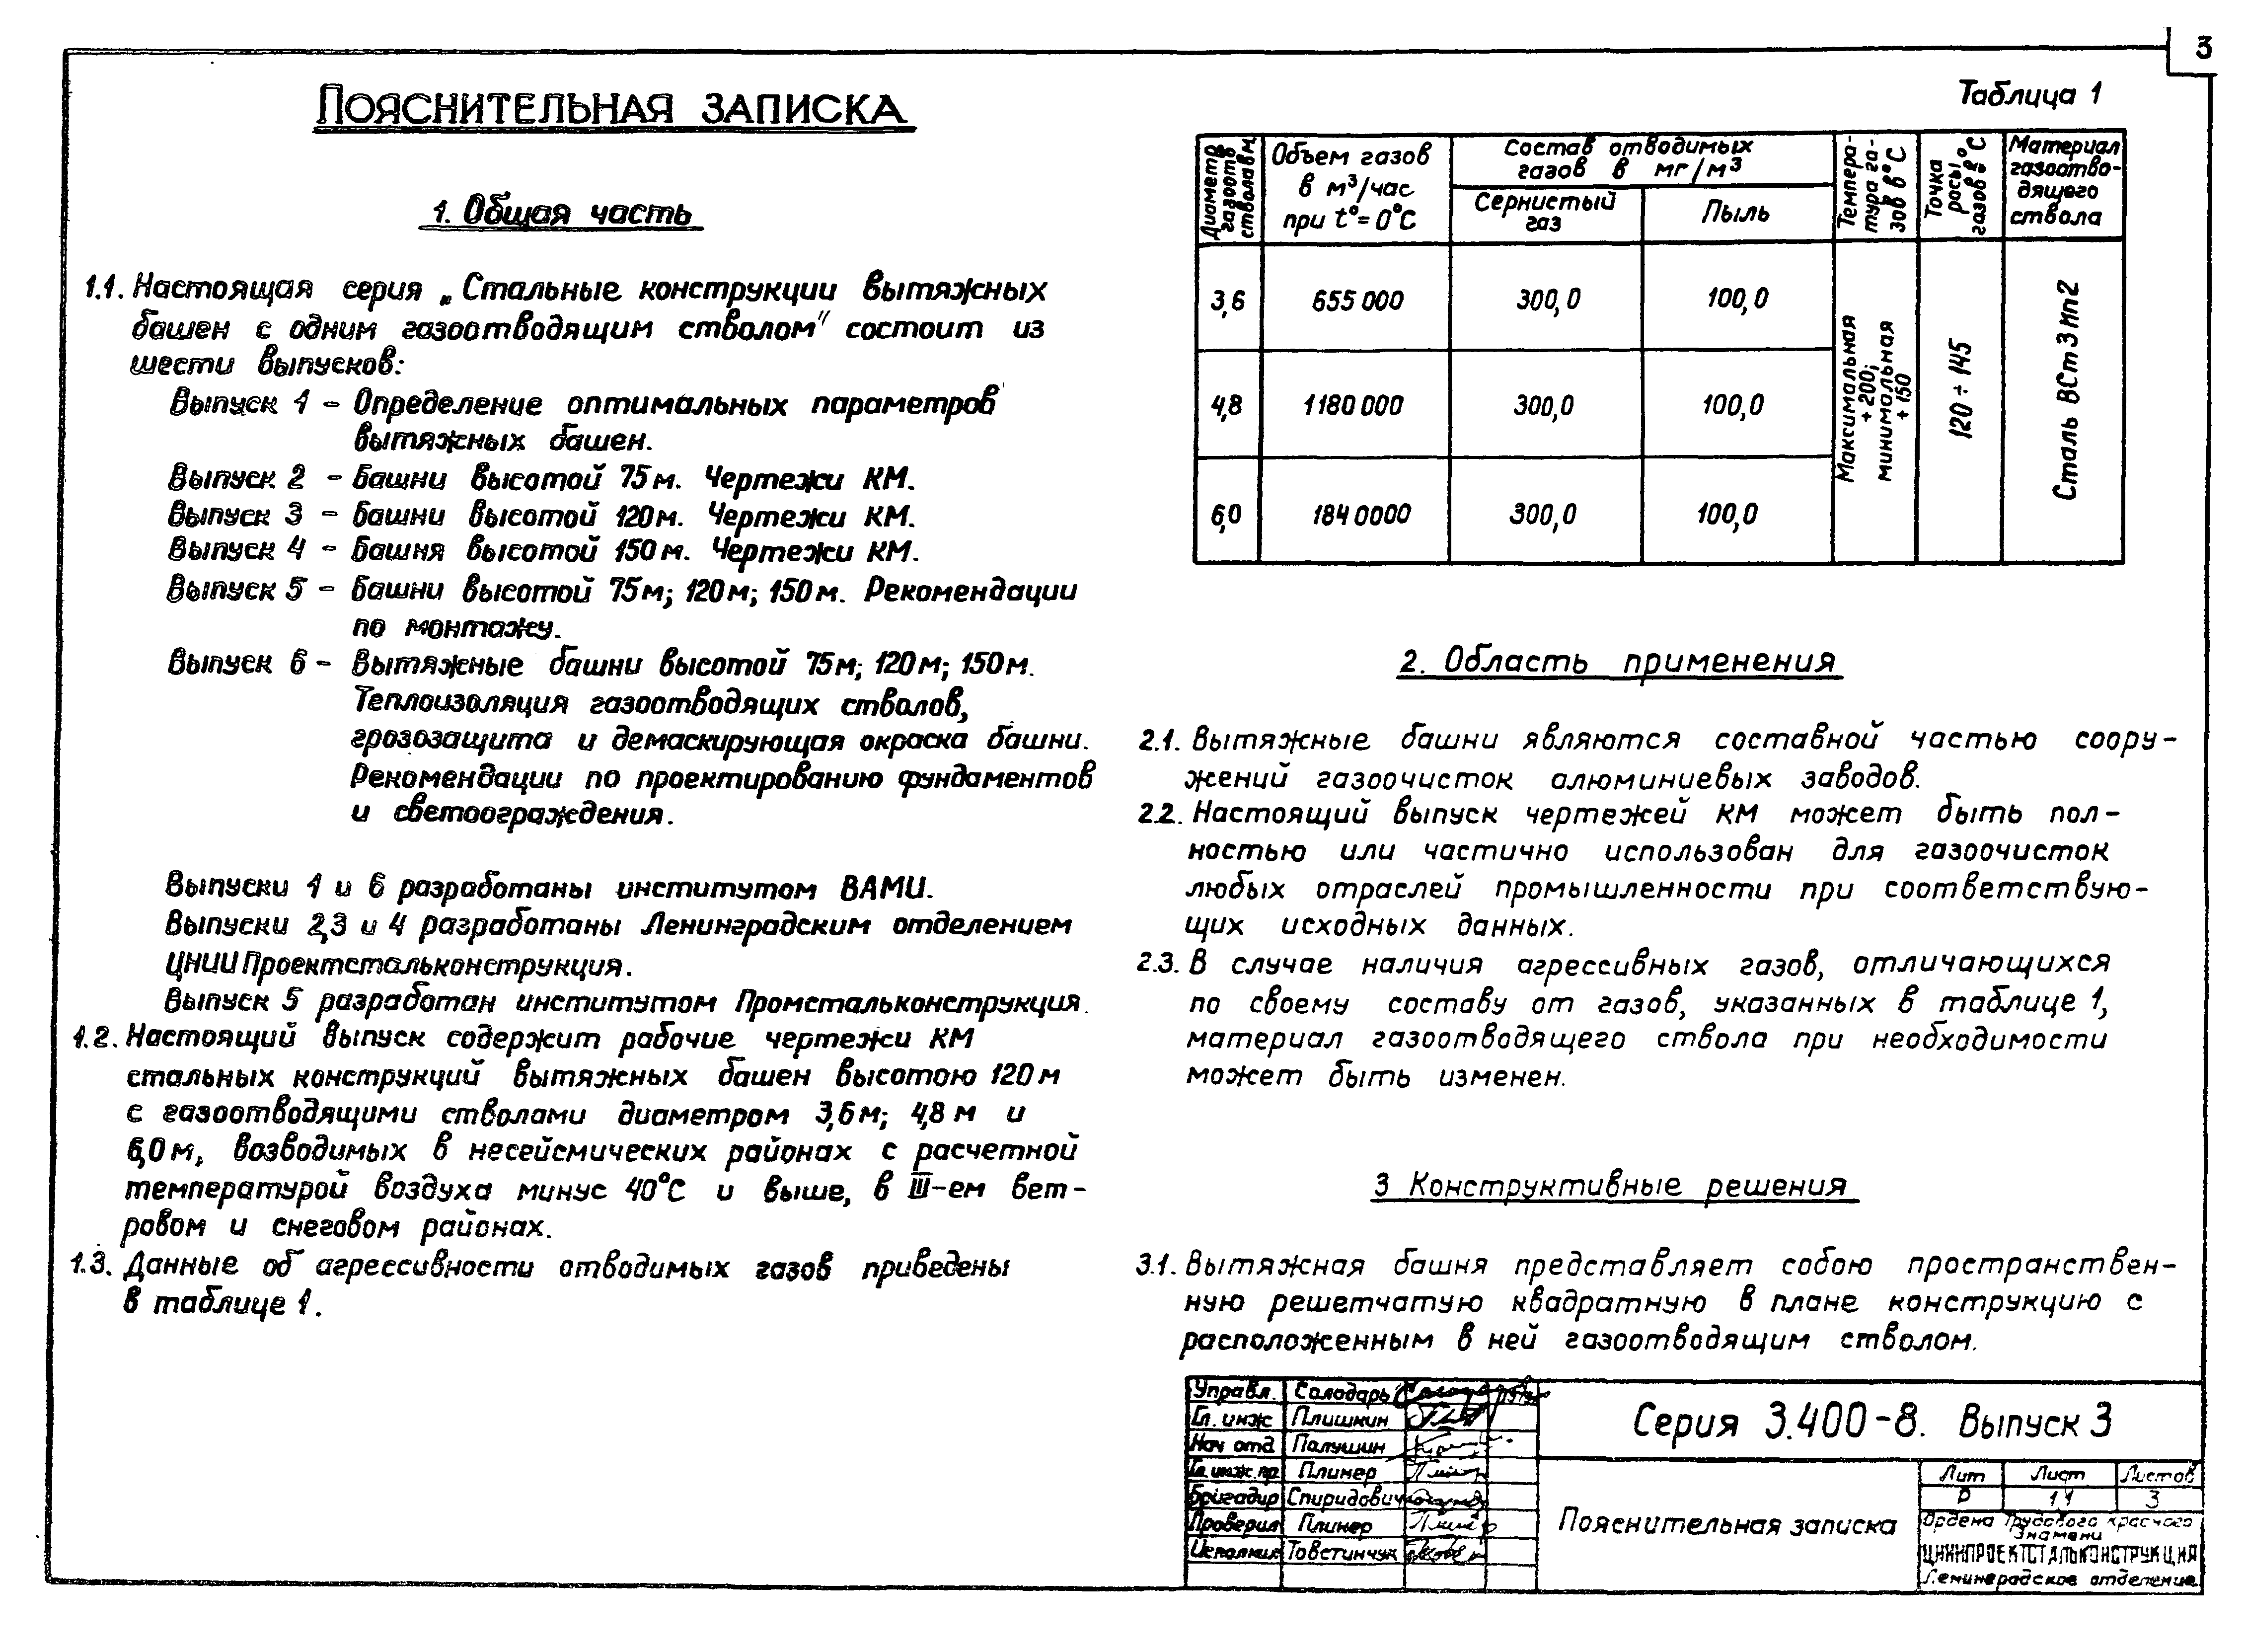 3
Пояснительная записка
1. Общая часть
1.1. Настоящая серия „Стальные конструкции вытяжных
башен с одним газоотводящим стволом" состоит из
шести выпусков:
Выпуск 1 - Определение оптимальных параметров
вытяжных башен.
Выпуск 2 - Башни высотой 75м. Чертежи КМ.
Выпуск 3 - Башни высотой 120м. Чертежи КМ.
Выпуск 4 - Башня высотой 150м. Чертежи КМ.
Выпуск 5 - Башни высотой 75м; 120м; 150м. Рекомендации
по монтажу.
Выпуск 6 - Вытяжные башни высотой 75м; 120м; 150м.
Теплоизоляция газоотводящих стволов,
грозозащита и демаскирующая окраска башни.
Рекомендации по проектированию фундаментов
и светоограждения.
Выпуски 1 и 6 разработаны институтом ВАМИ.
Выпуски 2,3 и 4 разработаны Ленинградским отделением
ЦНИИПроектстальконструкция.
Выпуск 5 разработан институтом Промстальконструкция.
1.2. Настоящий выпуск содержит рабочие чертежи КМ
стальных конструкций вытяжных башен высотою 120м
с газоотводящими стволами диаметром 3,6м; 4,8м и
6,0м, возводимых в несейсмических районах с расчетной
температурой воздуха минус 40°С и выше, в III-ем вет-
ровом и снеговом районах.
1.3. Данные об агрессивности отводимых газов приведены
в таблице 1.
Таблица 1
Диаметр
газоотв
ствола в м.
Объем газов
в м³/час
при t°=0°С
Состав отводимых
газов в мг/м³
Сернистый
газ
Пыль
Темпера-
тура га-
зов в °С
Точка
росы
газов в °С
Материал
газоотво-
дящего
ствола
3,6 655 000 300,0 100,0
4,8 1180 000 300,0 100,0
6,0 184 0000 300,0 100,0
Максимальная
+ 200;
минимальная
+ 150
120 ÷ 145
Сталь ВСт3Мп2
2. Область применения
2.1. Вытяжные башни являются составной частью соору-
жений газоочисток алюминиевых заводов.
2.2. Настоящий выпуск чертежей КМ может быть пол-
ностью или частично использован для газоочисток
любых отраслей промышленности при соответствую-
щих исходных данных.
2.3. В случае наличия агрессивных газов, отличающихся
по своему составу от газов, указанных в таблице 1,
материал газоотводящего ствола при необходимости
может быть изменен.
3 Конструктивные решения
3.1. Вытяжная башня представляет собою пространствен-
ную решетчатую квадратную в плане конструкцию с
расположенным в ней газоотводящим стволом.
Управл. Солодарь
Гл. инж Плишкин
Нач отд Палушин
Гл. инж. пр. Плинер
Бригадир Спиридович
Проверил Плинер
Исполнил Товстинчук
Серия 3.400-8. Выпуск 3
Пояснительная записка
Лит Лист Листов
Р 1.1 3
Ордена Трудового красного
Знамени
ЦНИИПРОЕКТСТАЛЬКОНСТРУКЦИЯ
Ленинградское отделение